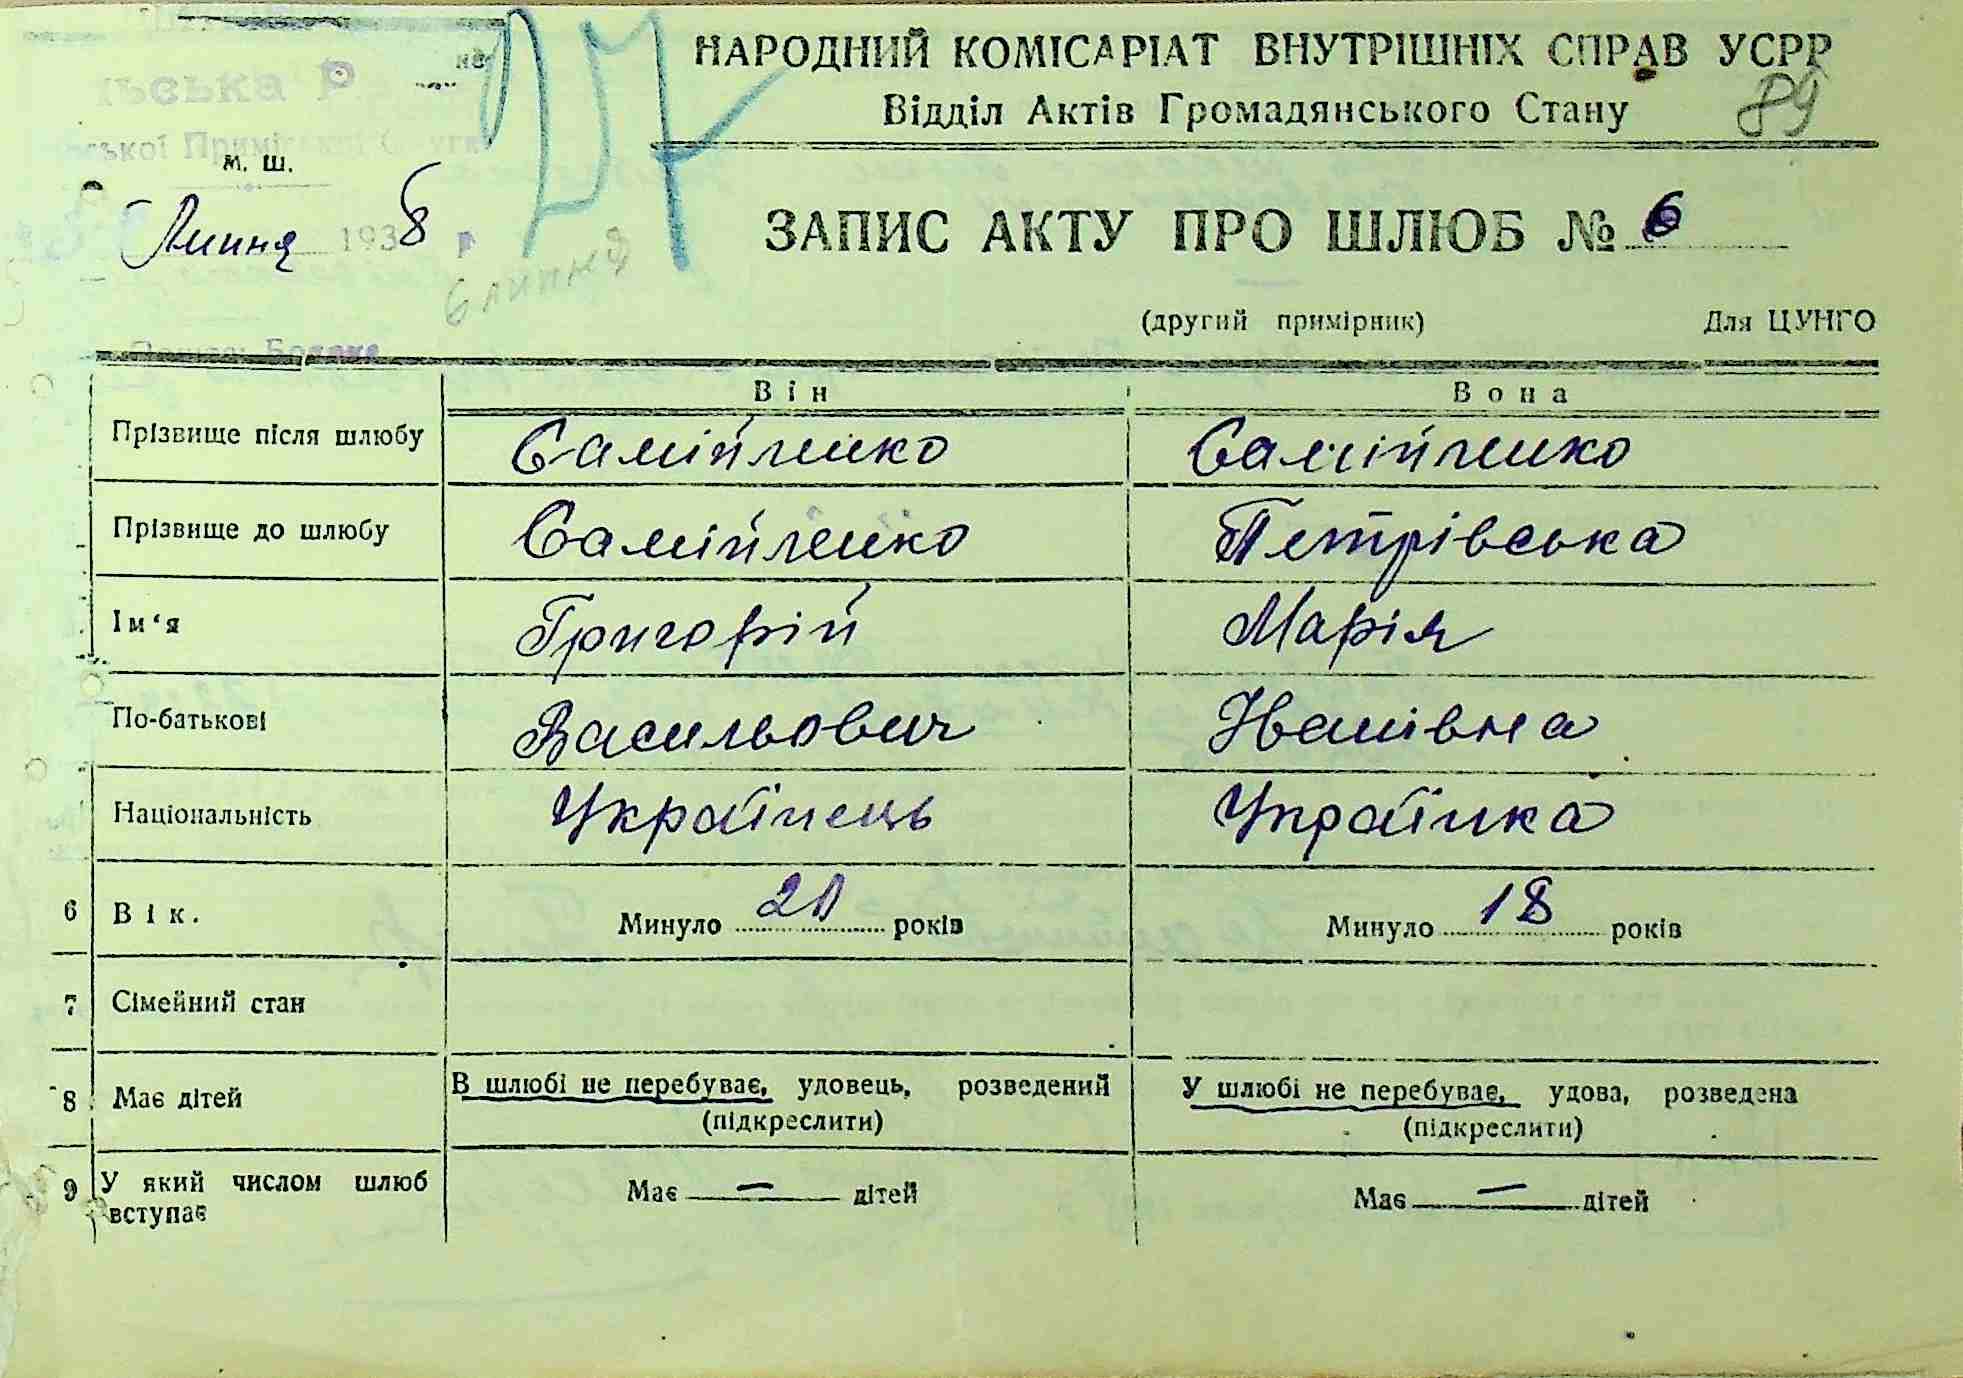 НАРОДНИЙ КОМІСАРІАТ ВНУТРІШНІХ СПРАВ УСРР
Відділ Актів Громадянського Стану
89
27
м. ш.
Липня 1938 р
6 липня
ЗАПИС АКТУ ПРО ШЛЮБ № 6
(другий примірник) Для ЦУНГО
Він Вона
Прізвище після шлюбу Самійленко Самійленко
Прізвище до шлюбу Самійленко Петрівська
Ім‘я Григорій Марія
По-батькові Васильович Іванівна
Національність Українець Українка
6 Вік. Минуло 20 років Минуло 18 років
7 Сімейний стан
8 Має дітей В шлюбі не перебуває, удовець, розведений У шлюбі не перебуває, удова, розведена
(підкреслити) (підкреслити)
9 У який числом шлюб вступає Має — дітей Має — дітей